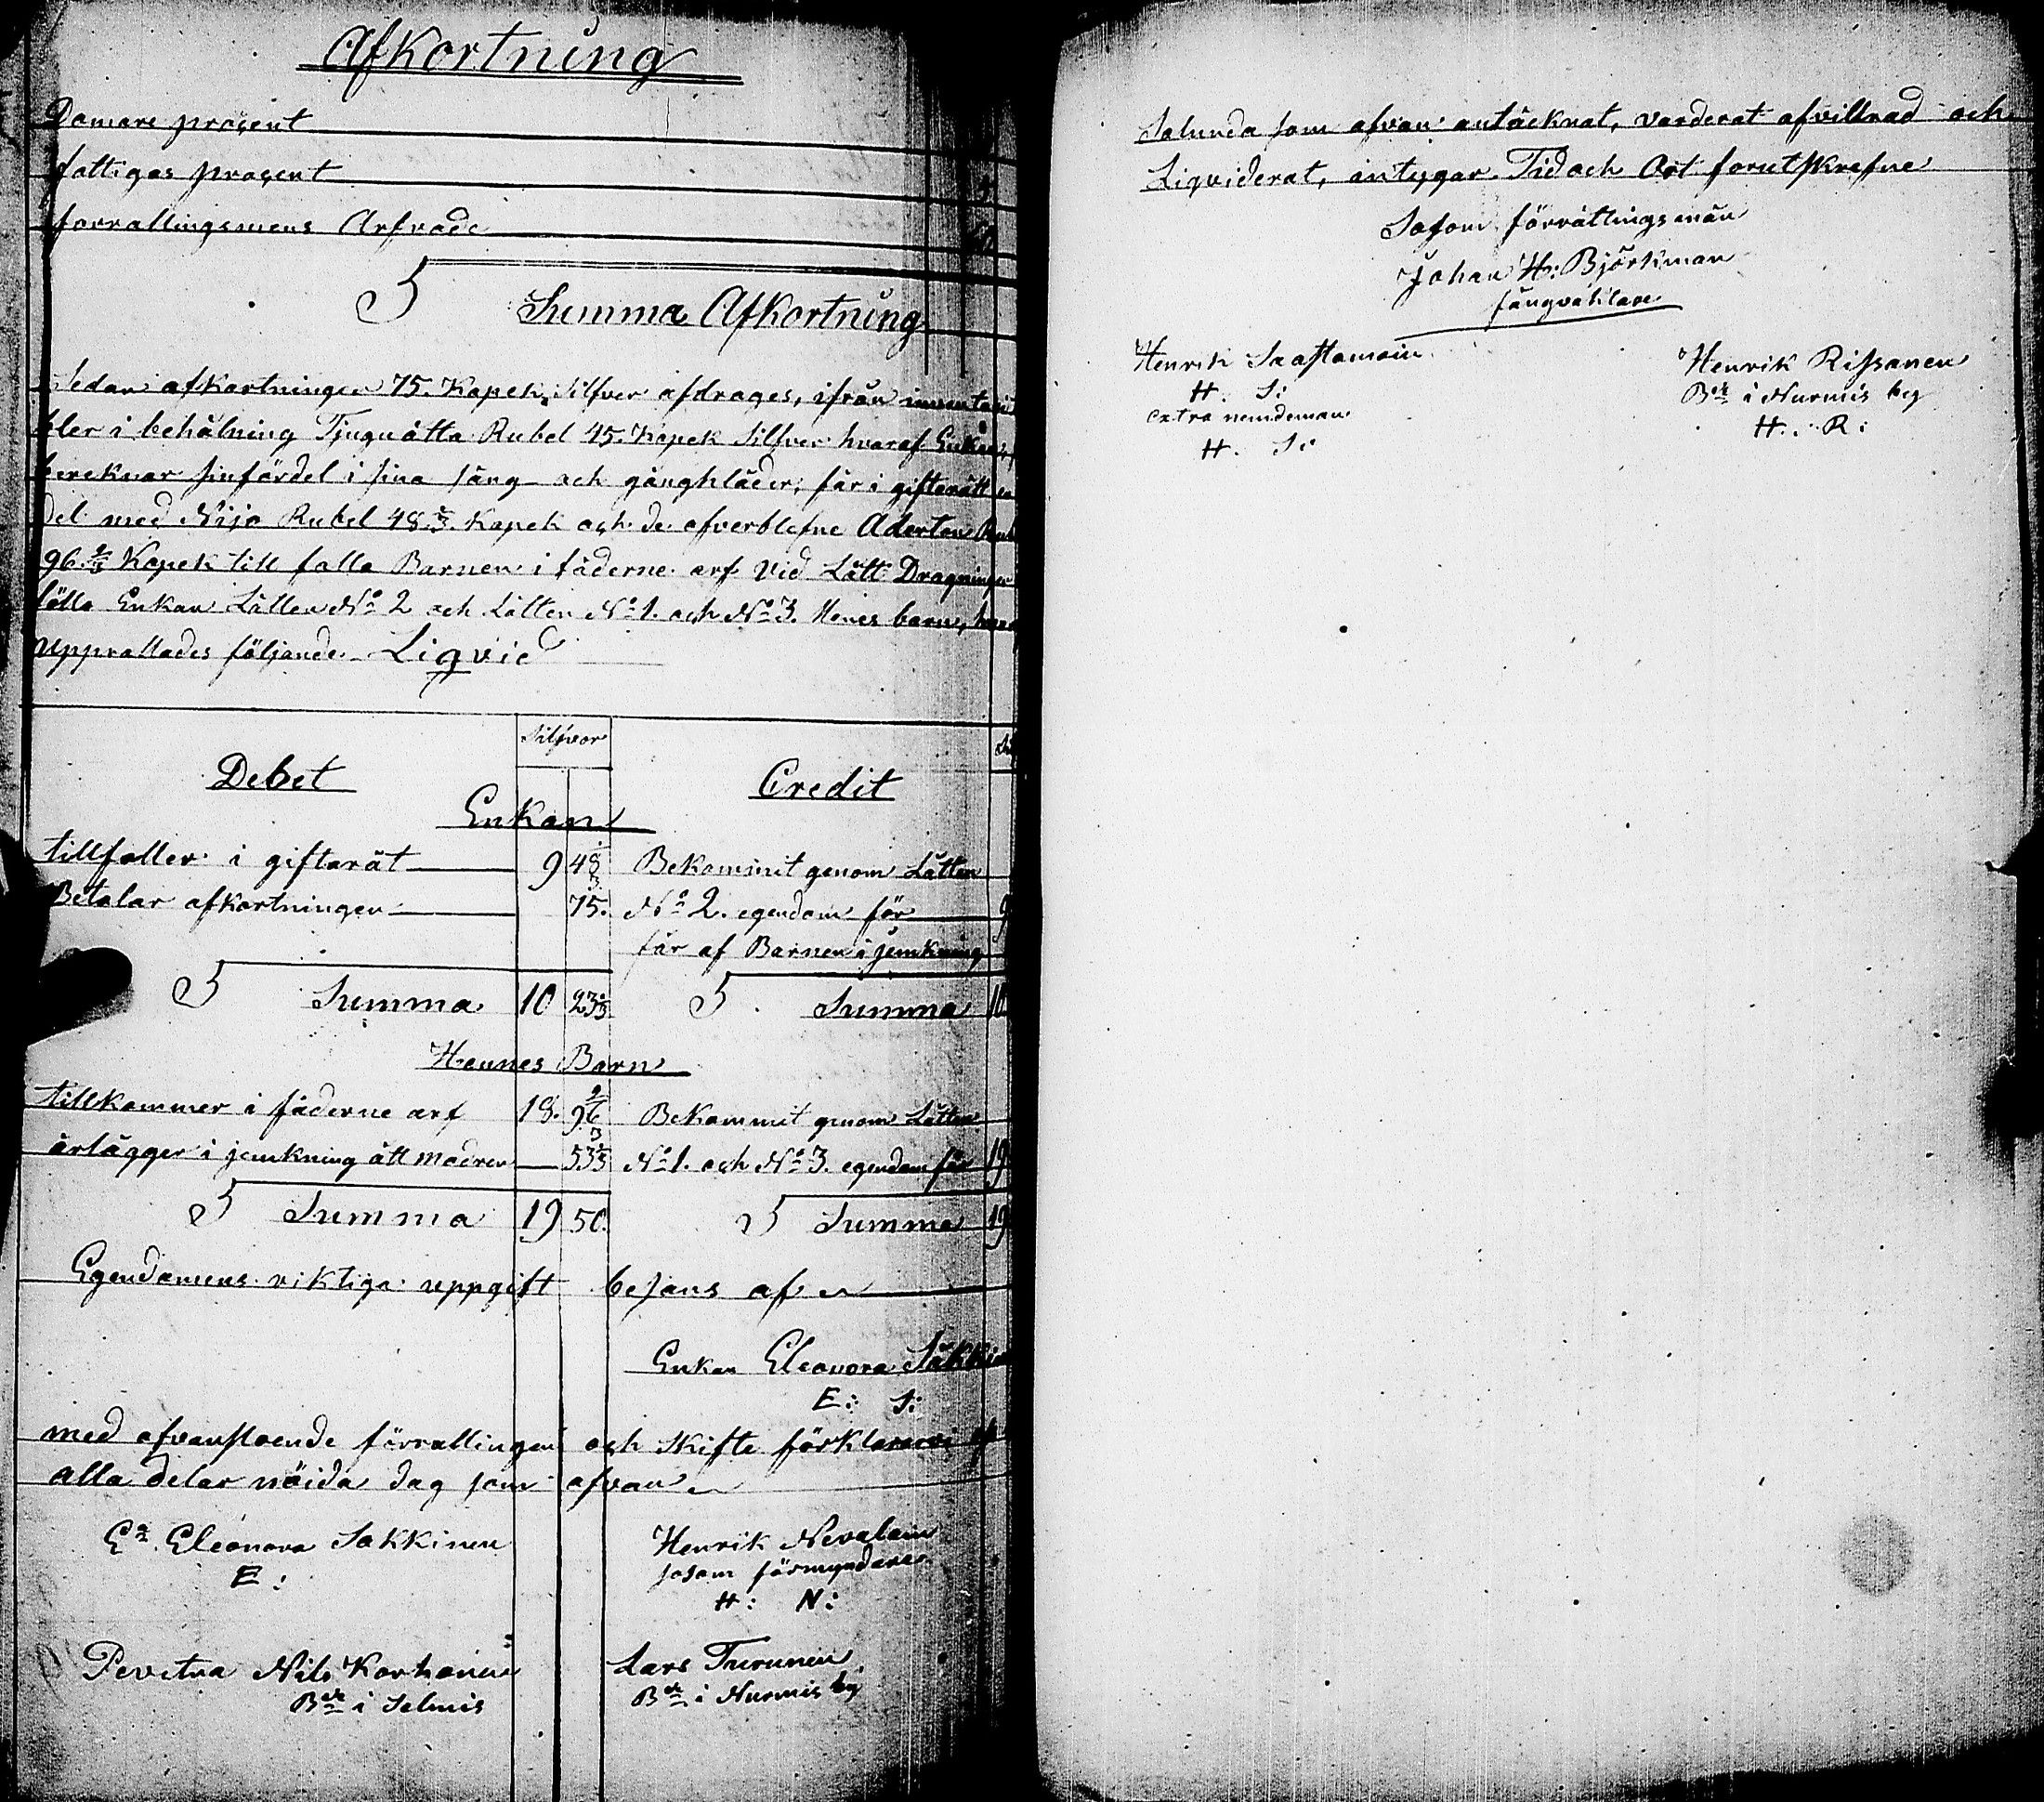 Afkortning
Domare procent
fattigas procent
forrattingsmens Arfvade
S Summa Afkortning
Sedan afkortningen 75. Kopek Silfver afdrages, ifrån
bler i behålning Tjuguåtta Rubel 45. Kopek Silfver hvaraf Enkan
bereknar sinfördel i sina säng och gångkläder, får i giftorätt
del med Nijo Rubel 48 1/3 Kopek och de ofverblefne Aderton
96 2/3 Kopek till falla Barnen i fäderne arf Vid Lått Dragningen
fölle Enkan Låtten No 2 och Låtten No 1. och No 3. Henes barn,
upprattades följande Liqvid
Silfver
Debet Credit
Enkan
tillfaller i giftorät 9 48 1/3 Bekommit genom Låtten
Betalar afkortningen 75. No 2. egendom för 9
får af Barnen i jemkning
S Summa 10 23 1/3 S Summa 10
Hennes Barn
tillkommer i fäderne arf 18. 96 2/3 Bekommit genom Låtten
ärlägger i jemkning ått modren 53 1/3 No 1. och No 3. egendom för 19
S Summa 19 50. S Summa 19
Egendomens riktiga uppgift bejaas af
Enkan Eleonora Säkkin
E: S:
med ofvanstoende förrattingen och skifte förklarar vi
alla delar nöida dag som ofvan
En Eleonora Sakkinen Henrik Nevalain
E: sosom förmyndare
H: N:
Nils Korhonen Lars Turunen
Bde i Selmis Bde i Nurmis by
Solunda som ofvan antäcknat, varderat afvittrad och
Liqviderat, intygar Tid och Ort forutskrefne
Sosom förrättingsmän
Johan H: Björkman
fångvaktare
Henrik Saastamoin Henrik Rissanen
H. S: Bde i Nurmis by
extra nemdeman H: R:
H. S: